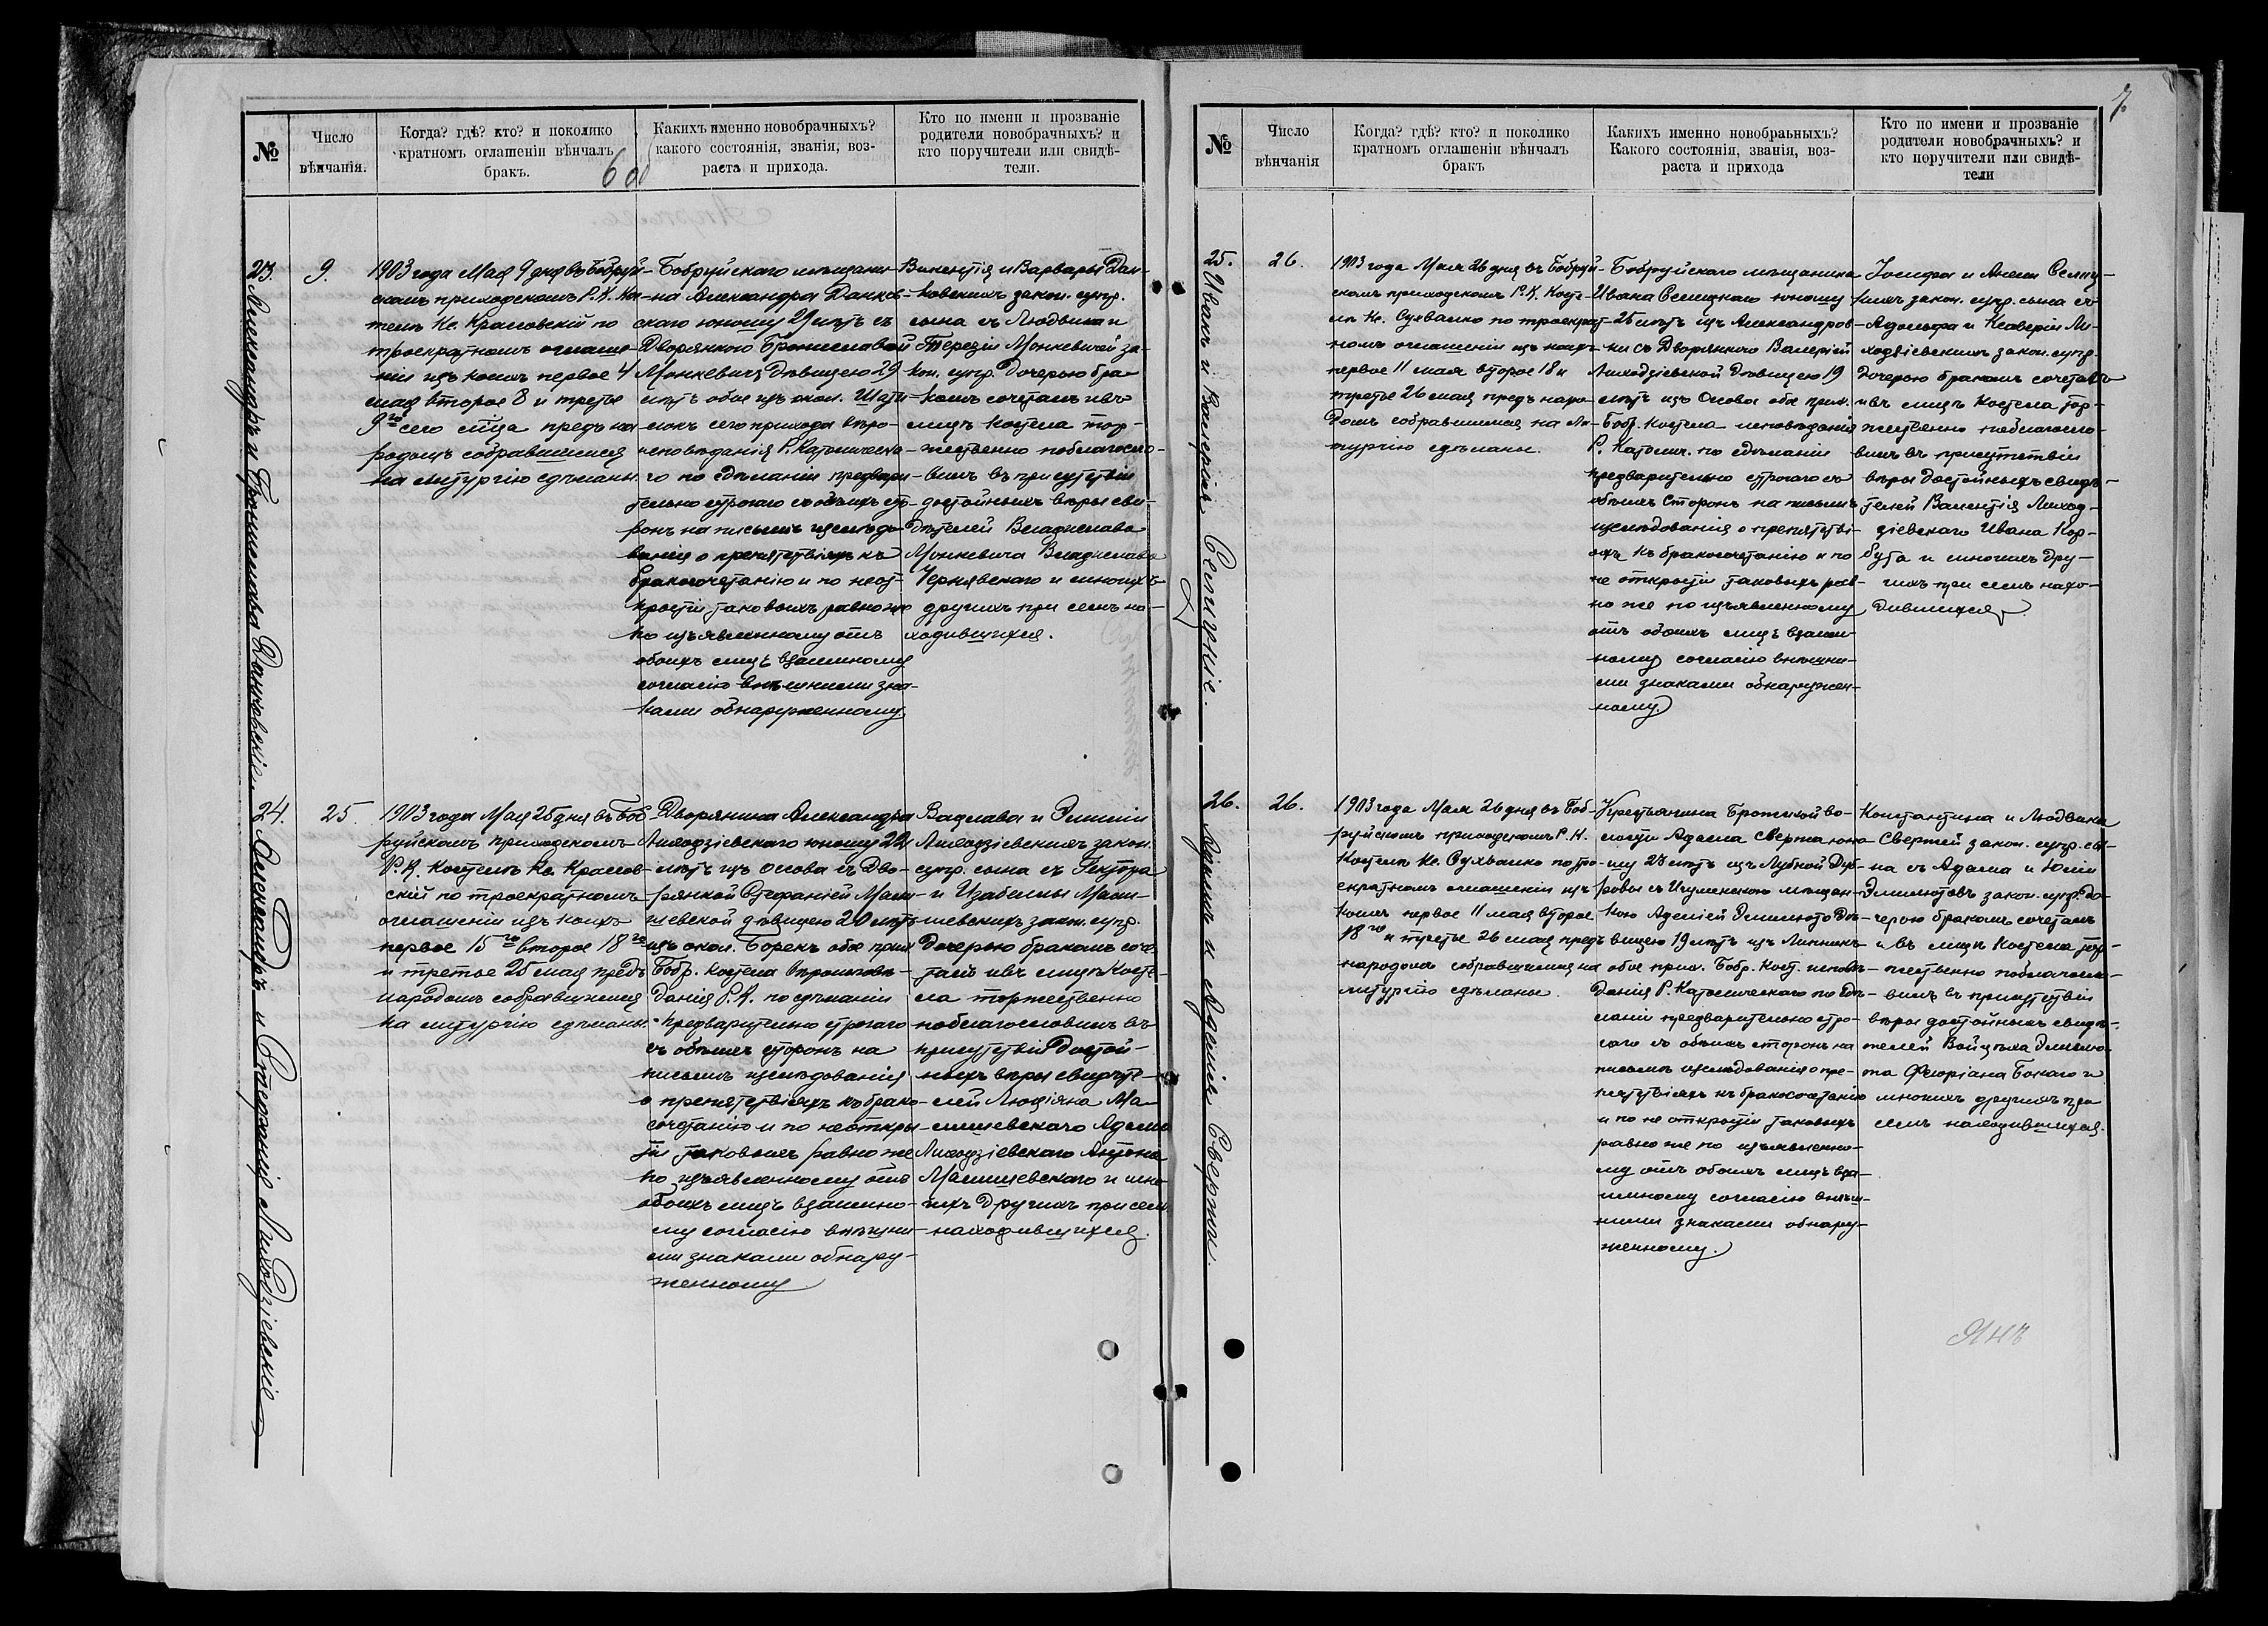 7
№
Число вѣнчанія.
Когда? гдѣ? кто? и поколико кратномъ оглашеніи вѣнчалъ бракъ.
Какихъ именно новобрачныхъ? какого состоянія, званія, возраста и прихода.
Кто по имени и прозваніе родители новобрачныхъ? и кто поручители или свидѣтели.
6 об
23.
Александръ и Брониславa Данковскіе
9.
1903 года Мая 9 дня въ Бобруй-
скомъ приходскомъ Р. К. Ко-
Кс. Красовскій по
троекратномъ оглаше-
ніи изъ коихъ первое 4
мая второе 8 и третье
9го сего м-ца предъ на-
родомъ собравшимся
на литургію сдѣланы.
Бобруйскаго мѣщани-
на Александра Данков-
скаго юношу 29 лѣтъ съ
Дворянкою Брониславой
Монкевичъ дѣвицею 29
лѣтъ обое изъ окол. Шати-
локъ сего прихода вѣро-
исповѣданія Р. Католическа-
го по сдѣланіи предвари-
тельно строгаго съ обѣихъ сто-
ронъ на письмѣ изслѣдо-
ванія о препятствіяхъ къ
бракосочетанію и по неот-
крытіи таковыхъ равно же
по изъявленному отъ
обоихъ лицъ взаимному
согласію внѣшними зна-
ками обнаруженному
Викентія и Варвары Дан-
ковскихъ закон. супр.
сына съ Людвика и
Терезіи Монкевичей за-
кон. супр. Дочерью бра-
комъ сочеталъ и въ
лицѣ костела тор-
жественно поблагосло-
вилъ въ присутствіи
достойныхъ вѣры сви-
дѣтелей Владислава
Монкевича Владислава
Чернявскаго и многихъ
другихъ при семъ на-
ходившихся.
24.
Александръ и Стефанія Лиходзіевскіе
25.
1903 года Мая 25 дня въ Боб-
руйскомъ приходскомъ
Р. К. Костелѣ Кс. Красов-
скій по троекратномъ
оглашеніи изъ коихъ
первое 15го второе 18го
и третье 25 мая предъ
народомъ собравшимся
на литургію сдѣланы.
Дворянина Александра
Лиходзіевскаго юношу 22
лѣтъ изъ Осова съ Дво-
рянкой Стефаніей Мали-
шевской дѣвицею 20 лѣтъ
изъ окол. Борекъ обое прих
Бобр. костела вѣроисповѣ-
данія Р. К. по сдѣланіи
предварительно строгаго
съ обѣихъ сторонъ на
письмѣ изслѣдованія
о препятствіяхъ къ брако-
сочетанію и по неоткры-
тіи таковыхъ равно же
по изъявленному отъ
обоихъ лицъ взаимно-
му согласію внѣшни-
ми знаками обнару-
женному
Вацлава и Эмиліи
Лиходзіевскихъ закон.
супр. сына съ Гектора
и Изабеллы Мали-
шевскихъ закон. супр.
Дочерью бракомъ соче-
талъ и въ лицѣ Косте-
ла торжественно
поблагословилъ въ
присутствіи Достой-
ныхъ вѣры свидѣте-
лей Люціяна Ма-
лишевскаго Адама
Лиходзіевскаго Антона
Малишевскаго и мно-
гихъ Другихъ при семъ
находившихся.
№
Число вѣнчанія
Когда? гдѣ? кто? и поколико кратномъ оглашеніи вѣнчалъ бракъ
Какихъ именно новобраьныхъ? Какого состоянія, званія, возраста и прихода
Кто по имени и прозваніе родители новобрачныхъ? и кто поручители или свидѣтели
25.
Иванъ и Валерія
26.
1903 года Мая 26 дня въ Бобруй-
скомъ приходскомъ Р. К. Косте-
лѣ Кс. Сухвалко по троекрат-
номъ оглашеніи изъ коихъ
первое 11 мая второе 18 и
третье 26 мая предъ наро-
домъ собравшимся на Ли-
тургію сдѣланы.
Бобруйскаго мѣщанина
Ивана юношу
25 лѣтъ изъ Александров-
ки съ Дворянкою Валеріей
Лиходзіевской Дѣвицею 19
лѣтъ изъ Осова обое прих.
Бобр. Костела исповѣданія
Р. Католич. по сдѣланіи
предварительно строгаго съ
обѣихъ Сторонъ на письмѣ
изслѣдованія о препятстві-
яхъ къ бракосочетанію и по
не открытіи таковыхъ рав-
но же по изъявленному
отъ обоихъ лицъ взаим-
ному согласію внѣшни-
ми знаками обнаружен-
ному.
Іосифа и
закон. супр. сына съ
Адольфа и Ксаверіи Ли-
ходзіевскихъ закон. супр.
Дочерью бракомъ сочеталъ
и въ лицѣ Костела тор-
жественно поблагосло-
вилъ въ присутствіи
вѣры Достойныхъ свидѣ-
телей Валентія Лиход-
зіевскаго Ивана Кор-
бута и многихъ дру-
гихъ при семъ нахо-
дившихся.
26.
Адамъ и Аделія Свержи.
26.
1903 года Мая 26 дня въ Боб-
руйскомъ приходскомъ Р. К.
Костелѣ Кс. Сухвалко по тро-
екратномъ оглашеніи изъ
коихъ первое 11 мая второе
18го и третье 26 мая предъ
народомъ собравшимся на
литургію сдѣланы.
Крестьянина Брожской во-
лости Адама Свержа юно-
шу 28 лѣтъ изъ Дуб-
ровы съ Игуменскою мѣщан-
кою Аделіей Дѣ-
вицею 19 лѣтъ изъ
обое прих. Бобр. Кост. исповѣ-
данія Р. Католическаго по сдѣ-
ланіи предварительно стро-
гаго съ обѣихъ сторонъ на
письмѣ изслѣдованія о пре-
пятствіяхъ къ бракосочетанію
и по не открытіи таковыхъ
равно же по изъявленно-
му отъ обоихъ лицъ вза-
имному согласію внѣш-
ними знаками обнару-
женному.
Константина и Людвики
Свержей закон. супр. сы-
на съ Адама и Юліи
закон. супр. До-
черью бракомъ сочеталъ
и въ лицѣ Костела тор-
жественно поблагосло-
вилъ въ присутствіи
вѣры достойныхъ свидѣ-
телей Войцѣха
Флоріана и
многихъ другихъ при
семъ находившихся.
Янъ